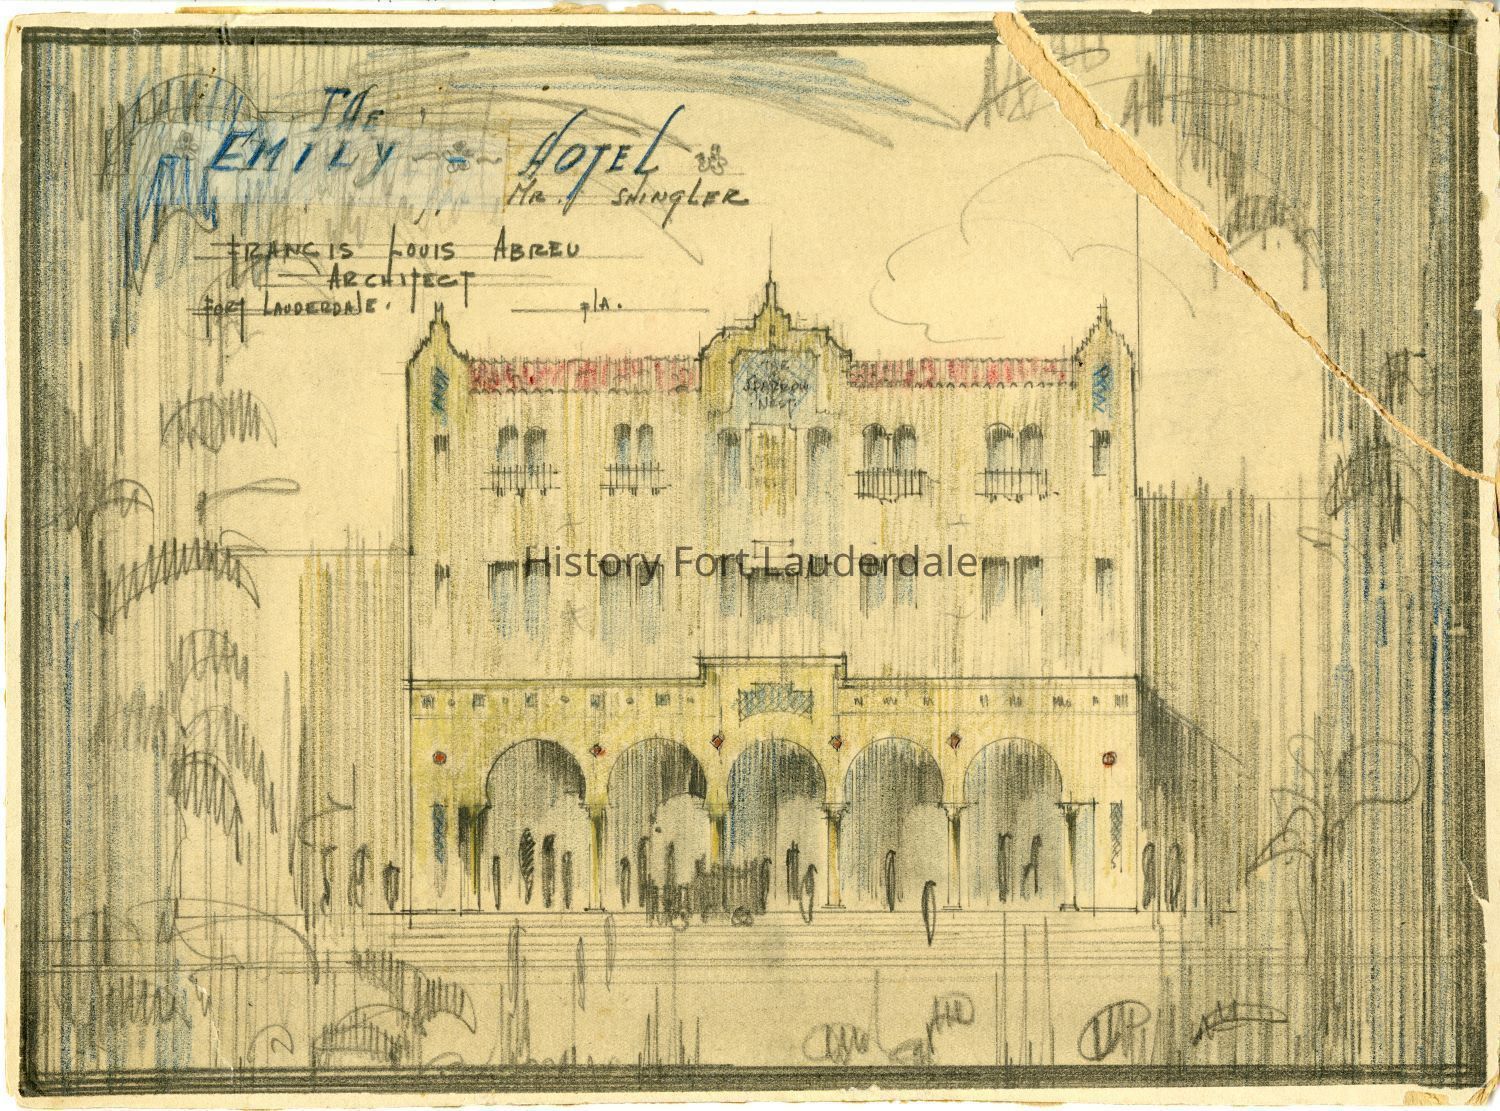 THE
EMILY - HOTEL
MR. SHINGLER
FRANCIS LOUIS ABREU
ARCHITECT
FORT LAUDERDALE. FLA.
THE
SPARROW
NEST
History Fort Lauderdale